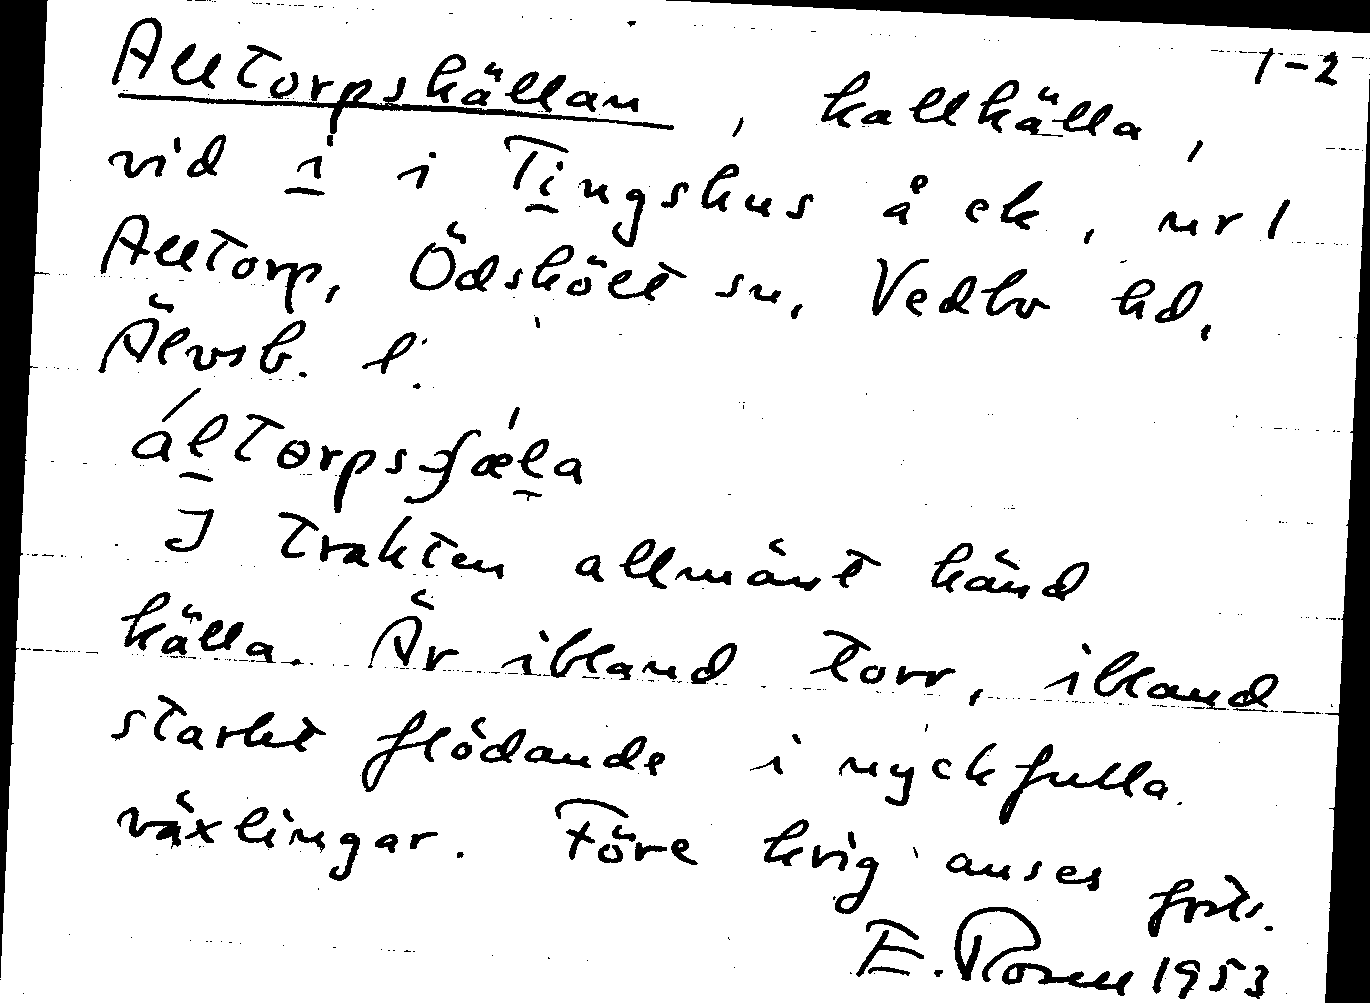 1-2
Alltorpskällan, kallkälla,
vid i i Tingshus å ek, nr 1
Alltorp, Ödskölt sn, Vedbo hd,
Älvsb. l.
I trakten allmänt känd
källa. Är ibland torr, ibland
starkt flödande i nyckfulla
växlingar. Före krig anses forts.
E. Rosell 1953